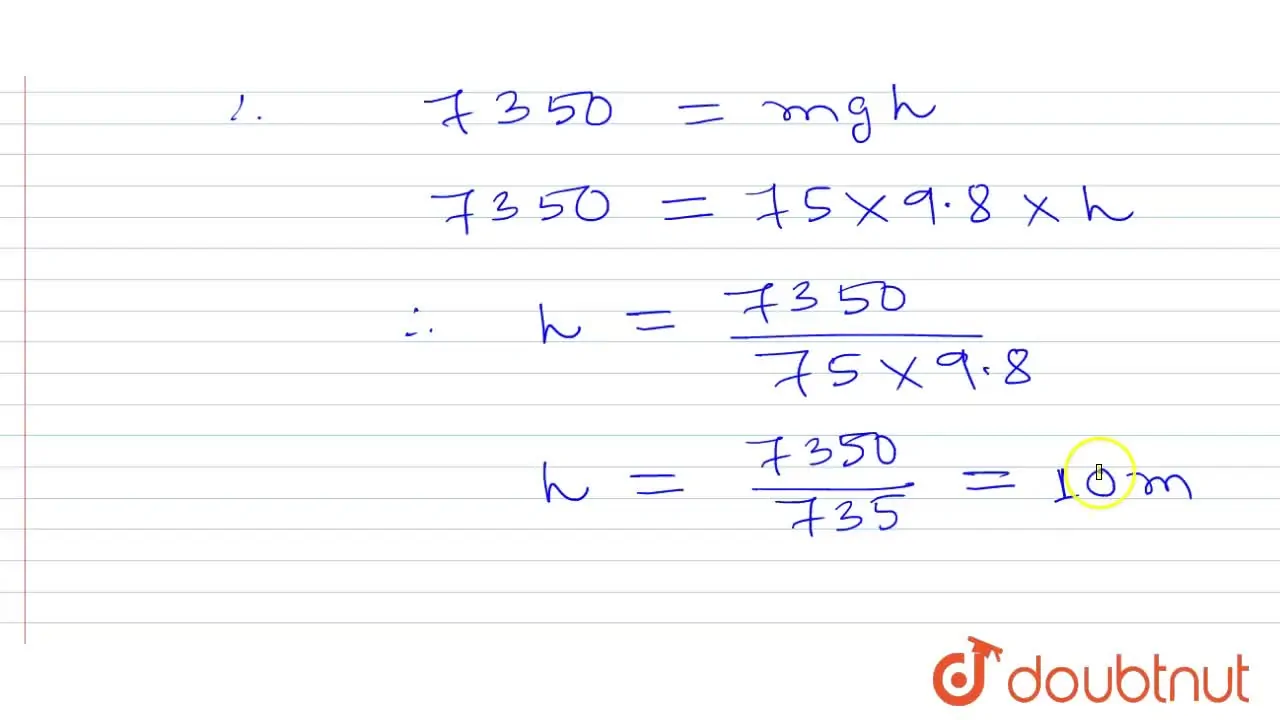 ∴ 7350 = mgh
7350 = 75 × 9.8 × h
∴ h = 7350 / 75 × 9.8
h = 7350 / 735 = 10 m
doubtnut